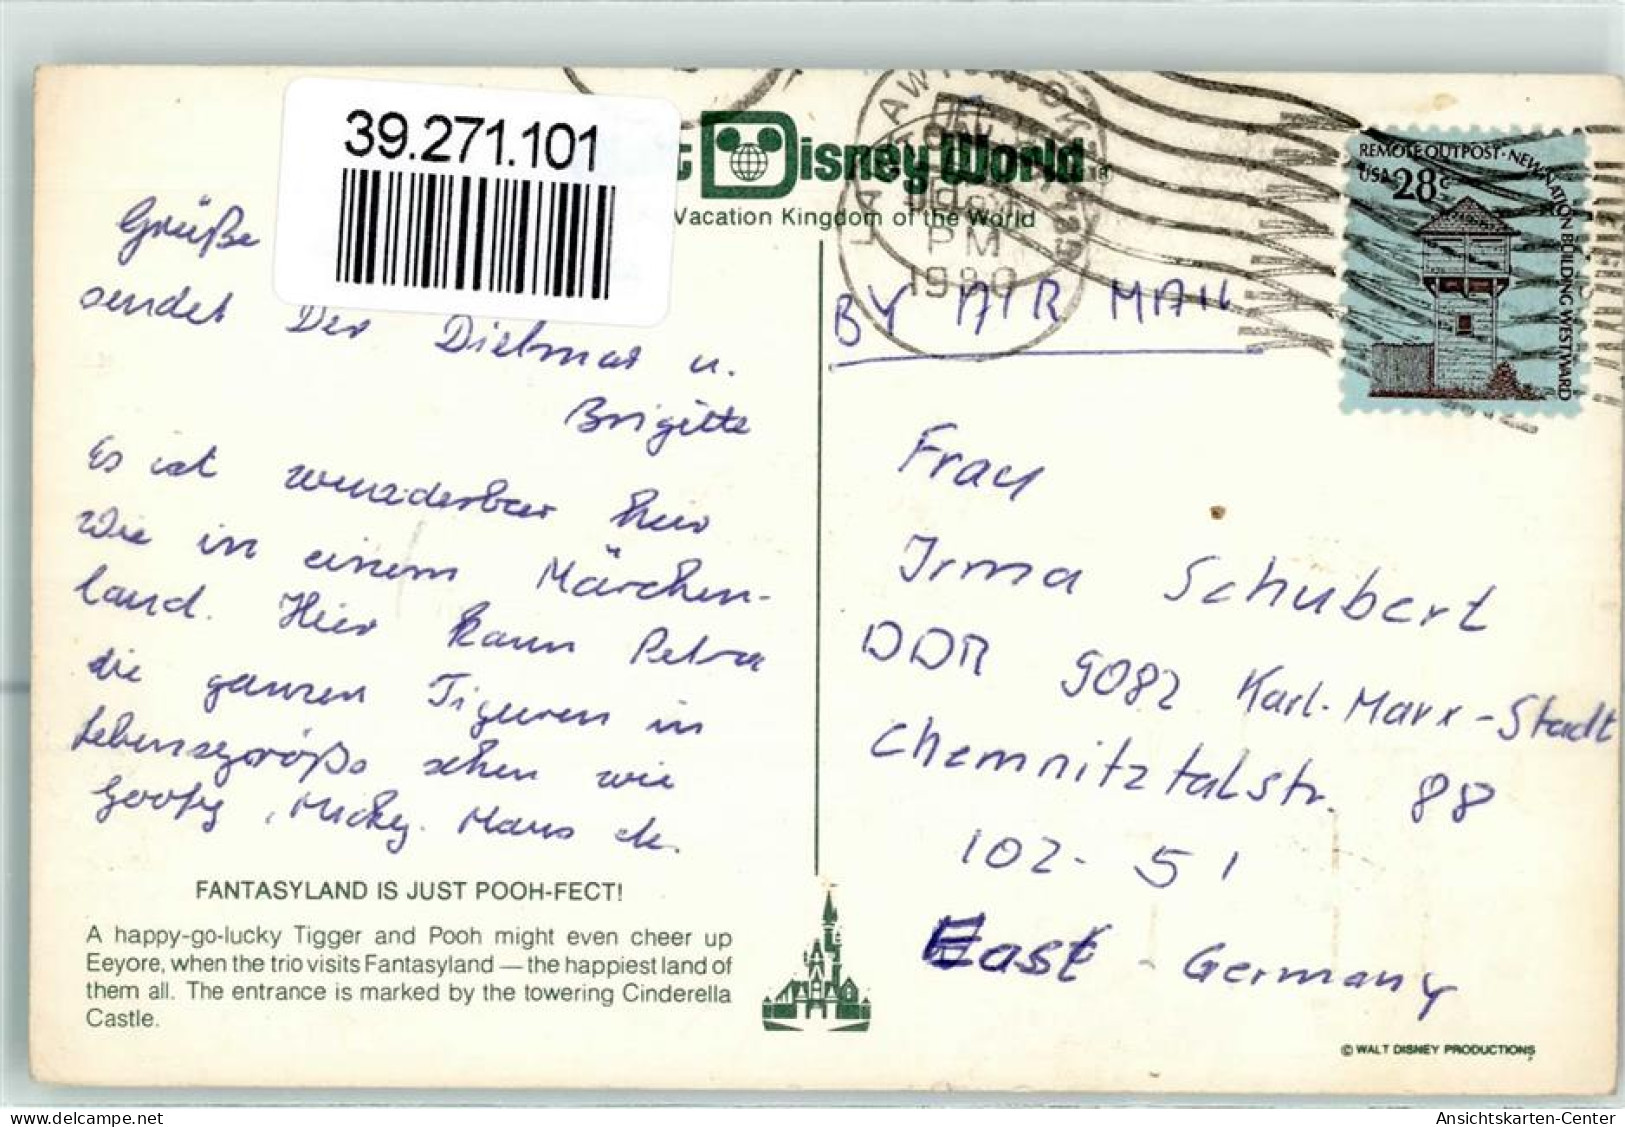 39.271.101
t Disney World
Vacation Kingdom of the World
PM
1980
REMOTE OUTPOST · NEW NATION BUILDING WESTWARD
USA 28c
Grüße
sendet Der Dietmar u.
Brigitte
Es ist wunderbar hier
Wie in einem Märchen-
land. Hier kann Petra
die ganzen Figuren in
Lebensgröße sehen wie
Goofy, Micky. Maus etc.
FANTASYLAND IS JUST POOH-FECT!
A happy-go-lucky Tigger and Pooh might even cheer up
Eeyore, when the trio visits Fantasyland — the happiest land of
them all. The entrance is marked by the towering Cinderella
Castle.
BY AIR MAIL
Frau
Irma Schubert
DDR 9082 Karl-Marx-Stadt
Chemnitztalstr. 88
102-51
East - Germany
© WALT DISNEY PRODUCTIONS
oldthing.de
Ansichtskarten-Center